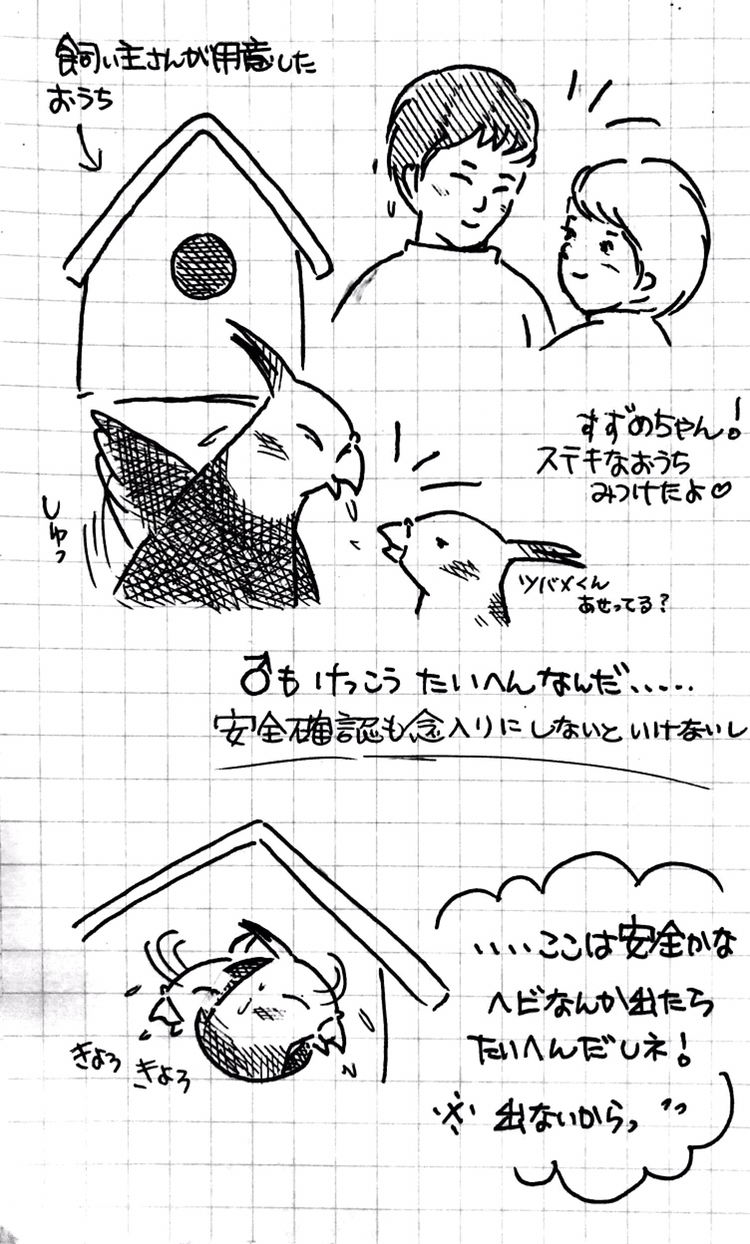 飼い主さんが用意した
おうち
すずめちゃん!
ステキなおうち
みつけたよ♡
しゅっ
ツバメくん
あせってる?
♂も けっこう たいへんなんだ‥‥‥
安全確認も念入りにしないといけないし
‥‥ここは安全かな
ヘビなんか出たら
たいへんだしネ!
※ 出ないからっ
きょろ
きょろ